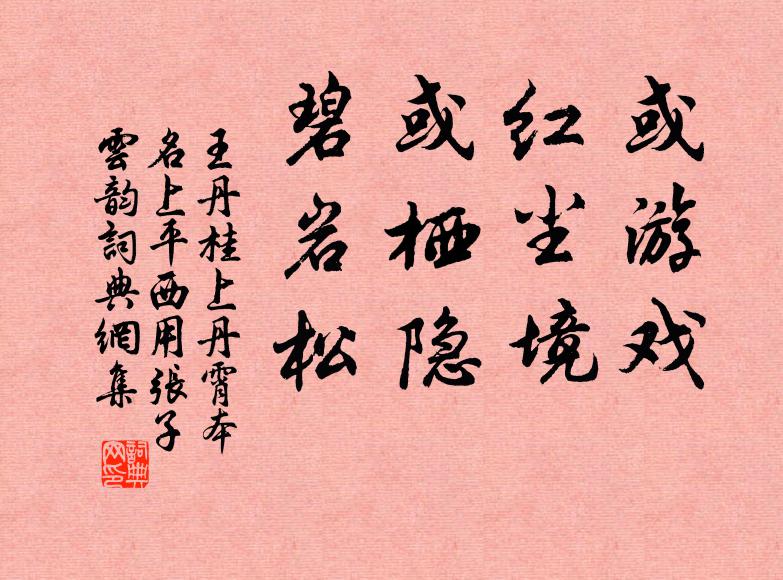 或游戏
红尘境
或栖隐
碧岩松
王丹桂上丹霄本
名上平西用張子
雲韵詞典網集
詞典
网印